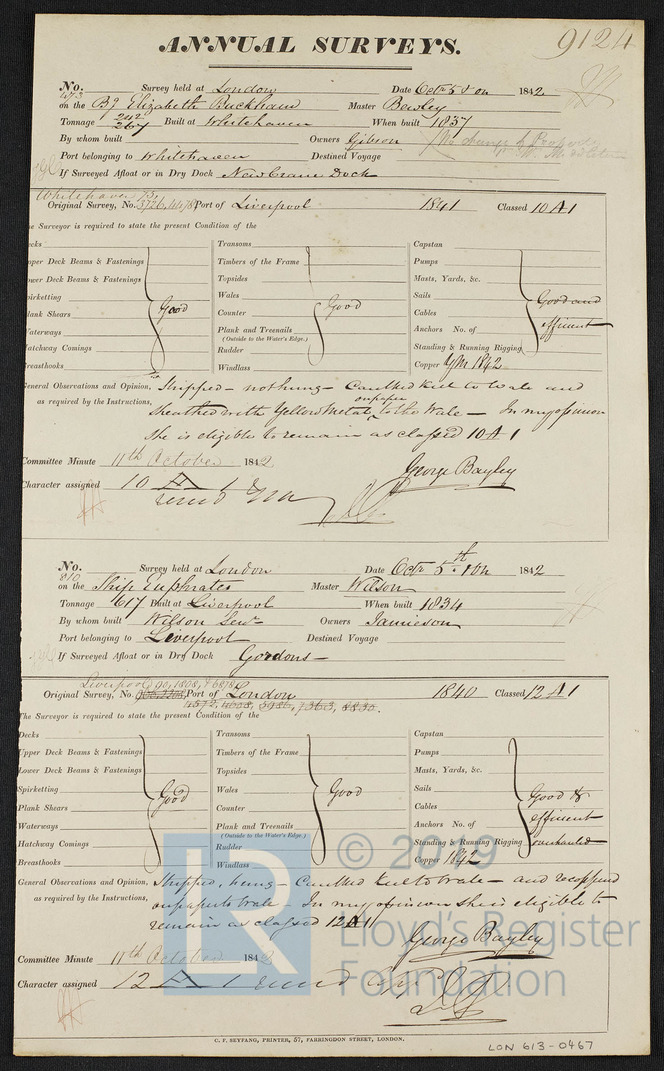 ANNUAL SURVEYS.
9124
No. 473 Survey held at London Date Octr 5 1842
on the Bg Elizabeth Buckham Master Bewley
Tonnage 242 267 Built at Whitehaven When built 1837
By whom built Owners Gibson
Port belonging to Whitehaven Destined Voyage
If Surveyed Afloat or in Dry Dock New Crane Dock
Whitehaven 73,
Original Survey, No. 3726, 4478 Port of Liverpool 1841 Classed 10 A 1
The Surveyor is required to state the present Condition of the
Decks Transoms Capstan
Upper Deck Beams & Fastenings Timbers of the Frame Pumps
Lower Deck Beams & Fastenings Topsides Masts, Yards, &c.
Spirketting Wales Sails Good and
Plank Shears Good Counter Good Cables efficient
Waterways Plank and Treenails Anchors No. of
(Outside to the Water's Edge.)
Hatchway Comings Rudder Standing & Running Rigging
Breasthooks Windlass Copper YM 1842
General Observations and Opinion, Stripped - nothung - Caulked keel to wale and
as required by the Instructions, sheathed with Yellow Metal on paper to the Wale - In my opinion
She is eligible to remain as classed 10 A 1
Committee Minute 11th October 1842 George Bayley
Character assigned 10 A 1
No. 810 Survey held at London Date Octr 5th 1842
on the Ship Euphrates Master Wilson
Tonnage 617 Built at Liverpool When built 1834
By whom built Wilson Senr Owners Jamieson
Port belonging to Liverpool Destined Voyage
If Surveyed Afloat or in Dry Dock Gordons
Liverpool 90, 1808, & 6878
Original Survey, No. Port of London 1840 Classed 12 A 1
4572, 4608, 5986, 7363, 8830.
The Surveyor is required to state the present Condition of the
Decks Transoms Capstan
Upper Deck Beams & Fastenings Timbers of the Frame Pumps
Lower Deck Beams & Fastenings Topsides Masts, Yards, &c.
Spirketting Good Wales Good Sails Good &
Plank Shears Counter Cables efficient
Waterways Plank and Treenails Anchors No. of
(Outside to the Water's Edge.)
Hatchway Comings Rudder Standing & Running Rigging overhauled
Breasthooks Windlass Copper 1842
General Observations and Opinion, Stripped, hung - Caulked keel to wale - and recoppered
as required by the Instructions, on paper to wale - In my opinion she is eligible to
remain as classed 12 A 1
George Bayley
Committee Minute 11th October 1842
Character assigned 12 A 1
C. F. SEYFANG, PRINTER, 57, FARRINGDON STREET, LONDON.
LON 613-0467
LR
© 2019
Lloyd's Register
Foundation